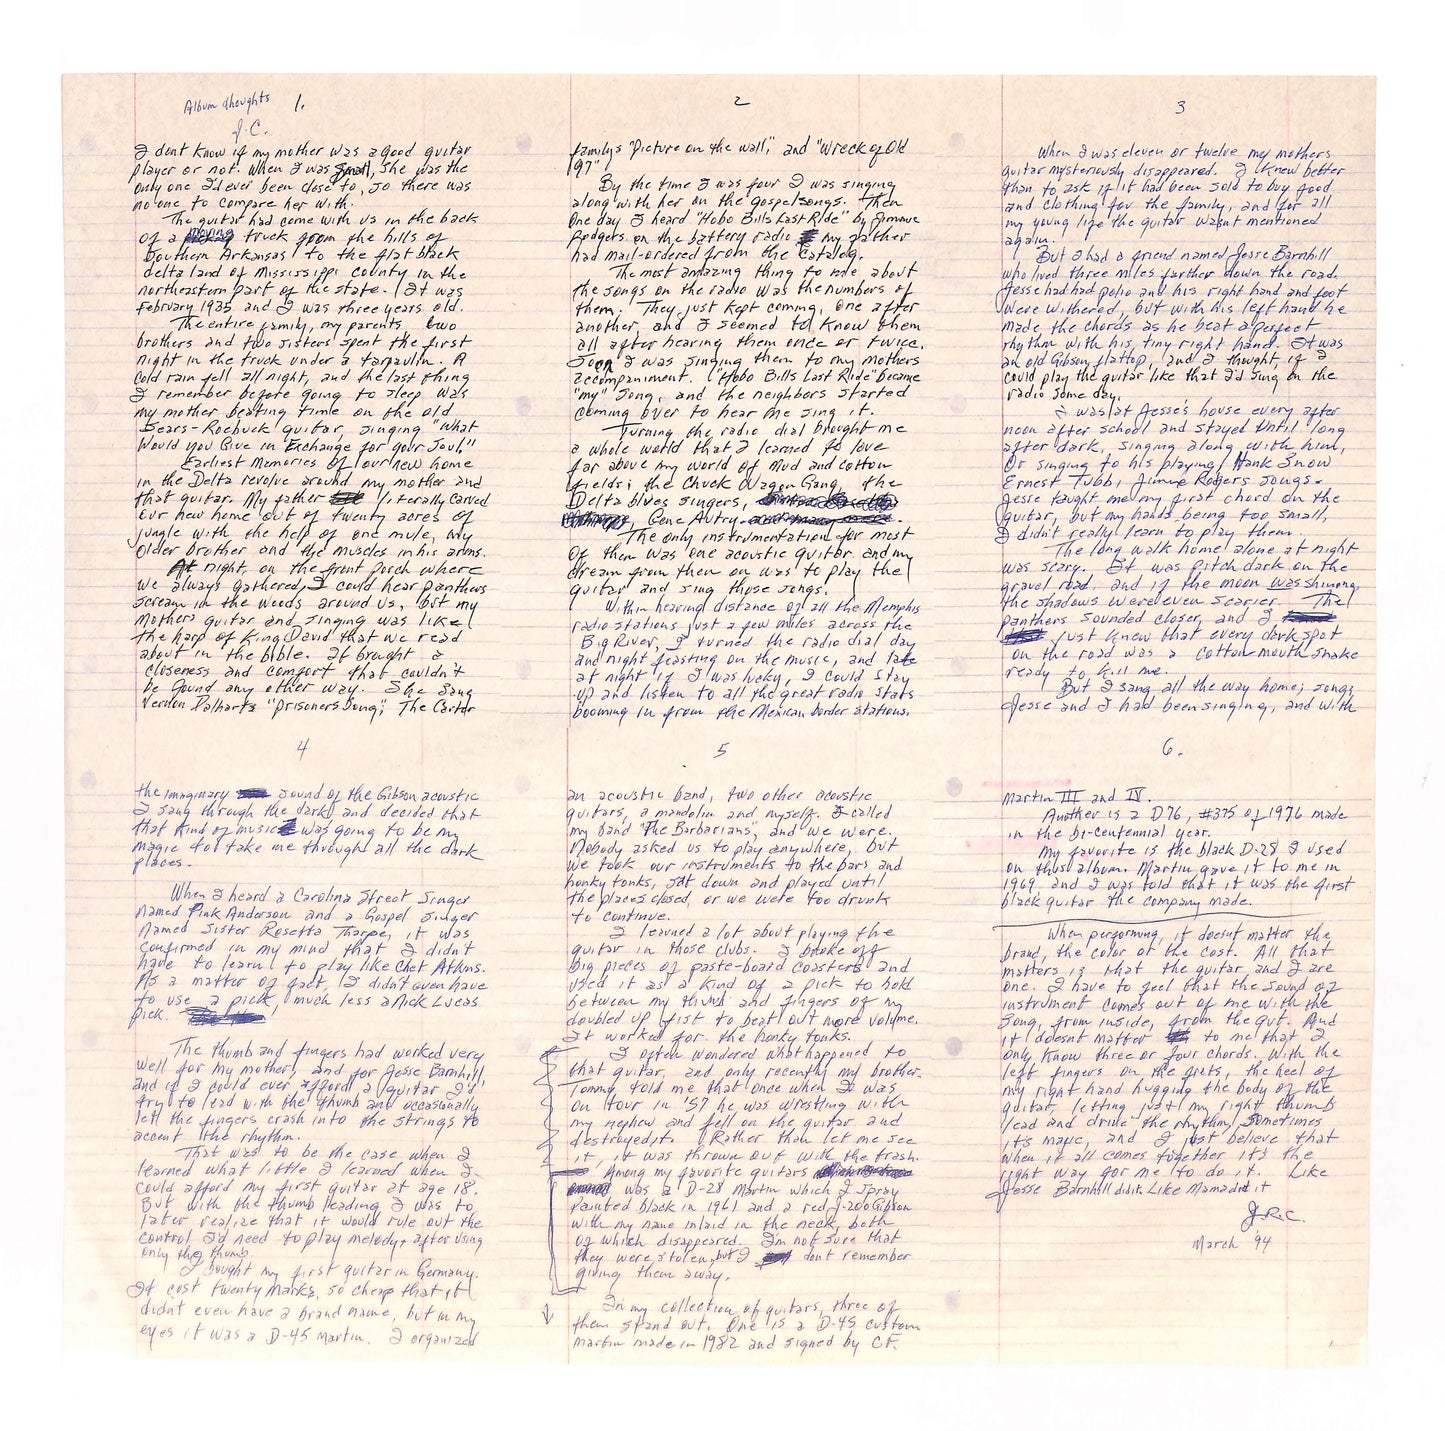 Album thoughts 1.
J.C.
I dont know if my mother was a good guitar
player or not. When I was small, she was the
only one I'd ever been close to, so there was
no one to compare her with.
The guitar had come with us in the back
of a moving truck from the hills of
Southern Arkansas to the flat black
delta land of Mississippi county in the
northeastern part of the state. It was
February 1935 and I was three years old.
The entire family, my parents, two
brothers and two sisters spent the first
night in the truck under a tarpaulin. A
cold rain fell all night, and the last thing
I remember before going to sleep was
my mother beating time on the old
Sears-Roebuck guitar, singing "What
Would you Give in Exchange for your Soul"
Earliest Memories of our new home
in the Delta revolve around my mother and
that guitar. My father literally carved
our new home out of twenty acres of
jungle with the help of one mule, my
older brother and the muscles in his arms.
At night, on the front porch where
we always gathered, I could hear panthers
scream in the woods around us, but my
mothers guitar and singing was like
the harp of King David that we read
about in the bible. It brought a
closeness and comfort that couldn't
be found any other way. She sang
Vernon Dalharts "Prisoners Song", The Carter
2
family's "Picture on the wall," and "Wreck of Old
97"
By the time I was four I was singing
along with her on the gospel songs. Then
one day I heard "Hobo Bills Last Ride" by Jimmie
Rodgers on the battery radio my father
had mail-ordered from the Catalog.
The most amazing thing to me about
the songs on the radio was the numbers of
them. They just kept coming, one after
another, and I seemed to know them
all after hearing them once or twice.
Soon I was singing them to my mothers
accompaniment. "Hobo Bills Last Ride" became
"my" song, and the neighbors started
coming over to hear me sing it.
Turning the radio dial brought me
a whole world that I learned to love
far above my world of mud and cotton
fields; the Chuck Wagon Gang, the
Delta blues singers,
Gene Autry
The only instrumentation for most
of them was one acoustic guitar and my
dream from then on was to play the
guitar and sing those songs.
Within hearing distance of all the Memphis
radio stations just a few miles across the
Big River, I turned the radio dial day
and night feasting on the music, and late
at night if I was lucky, I could stay
up and listen to all the great radio stars
booming in from the Mexican border stations.
3
When I was eleven or twelve my mothers
guitar mysteriously disappeared. I knew better
than to ask if it had been sold to buy food
and clothing for the family, and for all
my young life the guitar wasnt mentioned
again.
But I had a friend named Jesse Barnhill
who lived three miles farther down the road.
Jesse had had polio and his right hand and foot
were withered, but with his left hand he
made the chords as he beat a perfect
rhythm with his tiny right hand. It was
an old Gibson flattop, and I thought, if I
could play the guitar like that I'd sing on the
radio some day.
I was at Jesse's house every after
noon after school and stayed until long
after dark, singing along with him,
or singing to his playing Hank Snow
Ernest Tubb, Jimmie Rogers songs.
Jesse taught me my first chord on the
guitar, but my hands being too small,
I didn't really learn to play them.
The long walk home alone at night
was scary. It was pitch dark on the
gravel road, and if the moon was shining,
the shadows were even scarier. The
panthers sounded closer, and I
just knew that every dark spot
on the road was a cottonmouth snake
ready to kill me.
But I sang all the way home; songs
Jesse and I had been singing, and with
4
the imaginary sound of the Gibson acoustic
I sang through the dark, and decided that
that kind of music was going to be my
magic to take me through all the dark
places.
When I heard a Carolina Street Singer
Named Pink Anderson and a Gospel singer
Named Sister Rosetta Tharpe, it was
confirmed in my mind that I didn't
have to learn to play like Chet Atkins.
As a matter of fact, I didn't even have
to use a pick, much less a Nick Lucas
pick.
The thumb and fingers had worked very
well for my mother, and for Jesse Barnhill
and if I could ever afford a guitar I'd
try to lead with the thumb and occasionally
let the fingers crash into the strings to
accent the rhythm.
That was to be the case when I
learned what little I learned when I
could afford my first guitar at age 18.
But with the thumb leading I was to
later realize that it would rule out the
control I'd need to play melody, after using
only the thumb.
I bought my first guitar in Germany.
It cost twenty Marks, so cheap that it
didnt even have a brand name, but in my
eyes it was a D-45 Martin. I organized
5
an acoustic band, two other acoustic
guitars, a mandolin and myself. I called
my band "The Barbarians", and we were.
Nobody asked us to play anywhere, but
we took our instruments to the bars and
honky tonks, sat down and played until
the places closed, or we were too drunk
to continue.
I learned a lot about playing the
guitar in those clubs. I broke off
big pieces of paste-board coasters and
used it as a kind of a pick to hold
between my thumb and fingers of my
doubled up fist to beat out more volume.
It worked for the honky tonks.
I often wondered what happened to
that guitar, and only recently my brother
Tommy told me that once when I was
on tour in '57 he was wrestling with
my nephew and fell on the guitar and
destroyed it. Rather than let me see
it, it was thrown out with the trash.
Among my favorite guitars
was a D-28 Martin which I spray
painted black in 1961 and a red J-200 Gibson
with my name inlaid in the neck, both
of which disappeared. I'm not sure that
they were stolen, but I dont remember
giving them away.
In my collection of guitars, three of
them stand out. One is a D-45 custom
Martin made in 1982 and signed by C.F.
6.
Martin III and IV.
Another is a D76, #375 of 1976 made
in the bi-centennial year.
My favorite is the black D-28 I used
on this album. Martin gave it to me in
1969, and I was told that it was the first
black guitar the company made.
When performing, it doesnt matter the
brand, the color or the cost. All that
matters is that the guitar, and I are
one. I have to feel that the sound of
instrument comes out of me with the
song, from inside, from the gut. And
it doesnt matter to me that I
only know three or four chords. With the
left fingers on the frets, the heel of
my right hand hugging the body of the
guitar, letting just my right thumb
lead and drive the rhythm, sometimes
it's magic, and I just believe that
when it all comes together it's the
right way for me to do it. Like
Jesse Barnhill did. Like Mama did it
J.R.C.
March 94